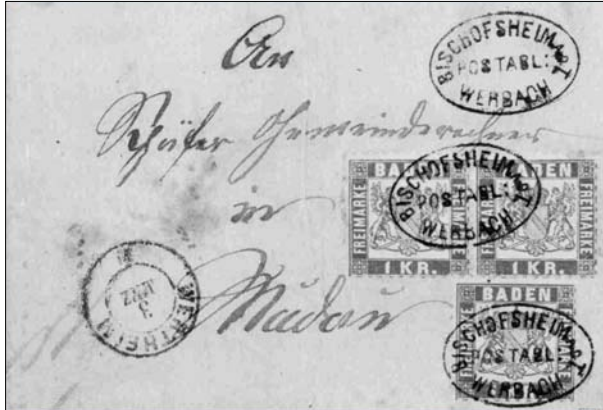 An
BISCHOFSHEIM A.T.
POSTABL:
WERBACH
Schäfer Gemeinderechner
in
Mudau
BADEN
FREIMARKE
1 KR.
BISCHOFSHEIM A.T.
POSTABL:
WERBACH
BADEN
FREIMARKE
1 KR.
WERTHEIM
3
MRZ
BADEN
FREIMARKE
BISCHOFSHEIM A.T.
POSTABL:
WERBACH